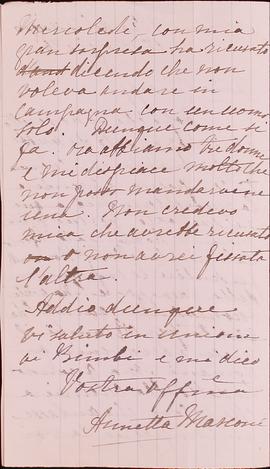 Mercoledì, con mia
gran sorpresa ha ricusato
dicendo che non
voleva andare in
campagna con un uomo
solo. Dunque come si
fa. ora abbiamo tre donne
e mi dispiace molto che
non posso mandarvene
una. Non credevo
mica che avrebbe ricusato
o non avrei fissata
l'altra.
Addio dunque
vi saluto in unione
ai Bimbi e mi dico
Vostra Aff̃ma
Annetta Marconi